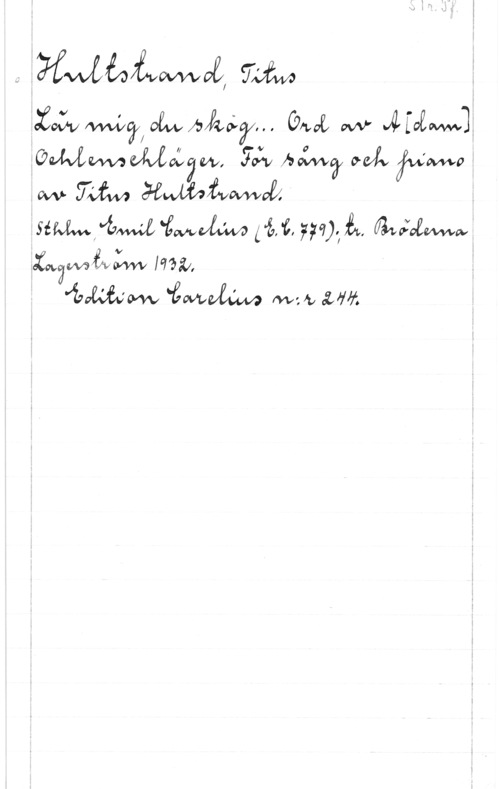 S 1 r. Pf.
Hultstrand, Titus
Lär mig, du skog... Ord av A[dam]
Oehlenschläger. För sång och piano
av Titus Hultstrand.
Sthlm, Emil Carelius (E.C. 779); tr. Bröderna
Lagerström 1932.
Edition Carelius n:r 244.